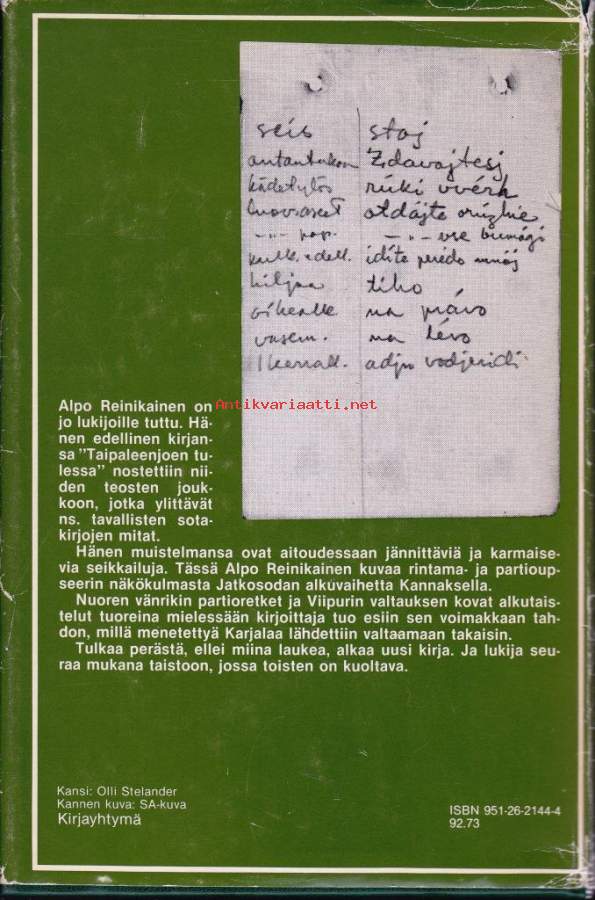 seis staj
antautukaa Zdavajtesj
kädet ylös rúki vvérh
luov.aseet otdájte orúzhie
—"— pap. —"— vse bumági
kulk. edell. idíte perédo mnój
hiljaa tiho
oikealle na právo
vasem. na lévo
1 kerrall.
Antikvariaatti.net
Alpo Reinikainen on
jo lukijoille tuttu. Hä-
nen edellinen kirjan-
sa "Taipaleenjoen tu-
lessa" nostettiin nii-
den teosten jouk-
koon, jotka ylittävät
ns. tavallisten sota-
kirjojen mitat.
Hänen muistelmansa ovat aitoudessaan jännittäviä ja karmaise-
via seikkailuja. Tässä Alpo Reinikainen kuvaa rintama- ja partioup-
seerin näkökulmasta Jatkosodan alkuvaihetta Kannaksella.
Nuoren vänrikin partioretket ja Viipurin valtauksen kovat alkutais-
telut tuoreina mielessään kirjoittaja tuo esiin sen voimakkaan tah-
don, millä menetettyä Karjalaa lähdettiin valtaamaan takaisin.
Tulkaa perästä, ellei miina laukea, alkaa uusi kirja. Ja lukija seu-
raa mukana taistoon, jossa toisten on kuoltava.
Kansi: Olli Stelander
Kannen kuva: SA-kuva
Kirjayhtymä
ISBN 951-26-2144-4
92.73